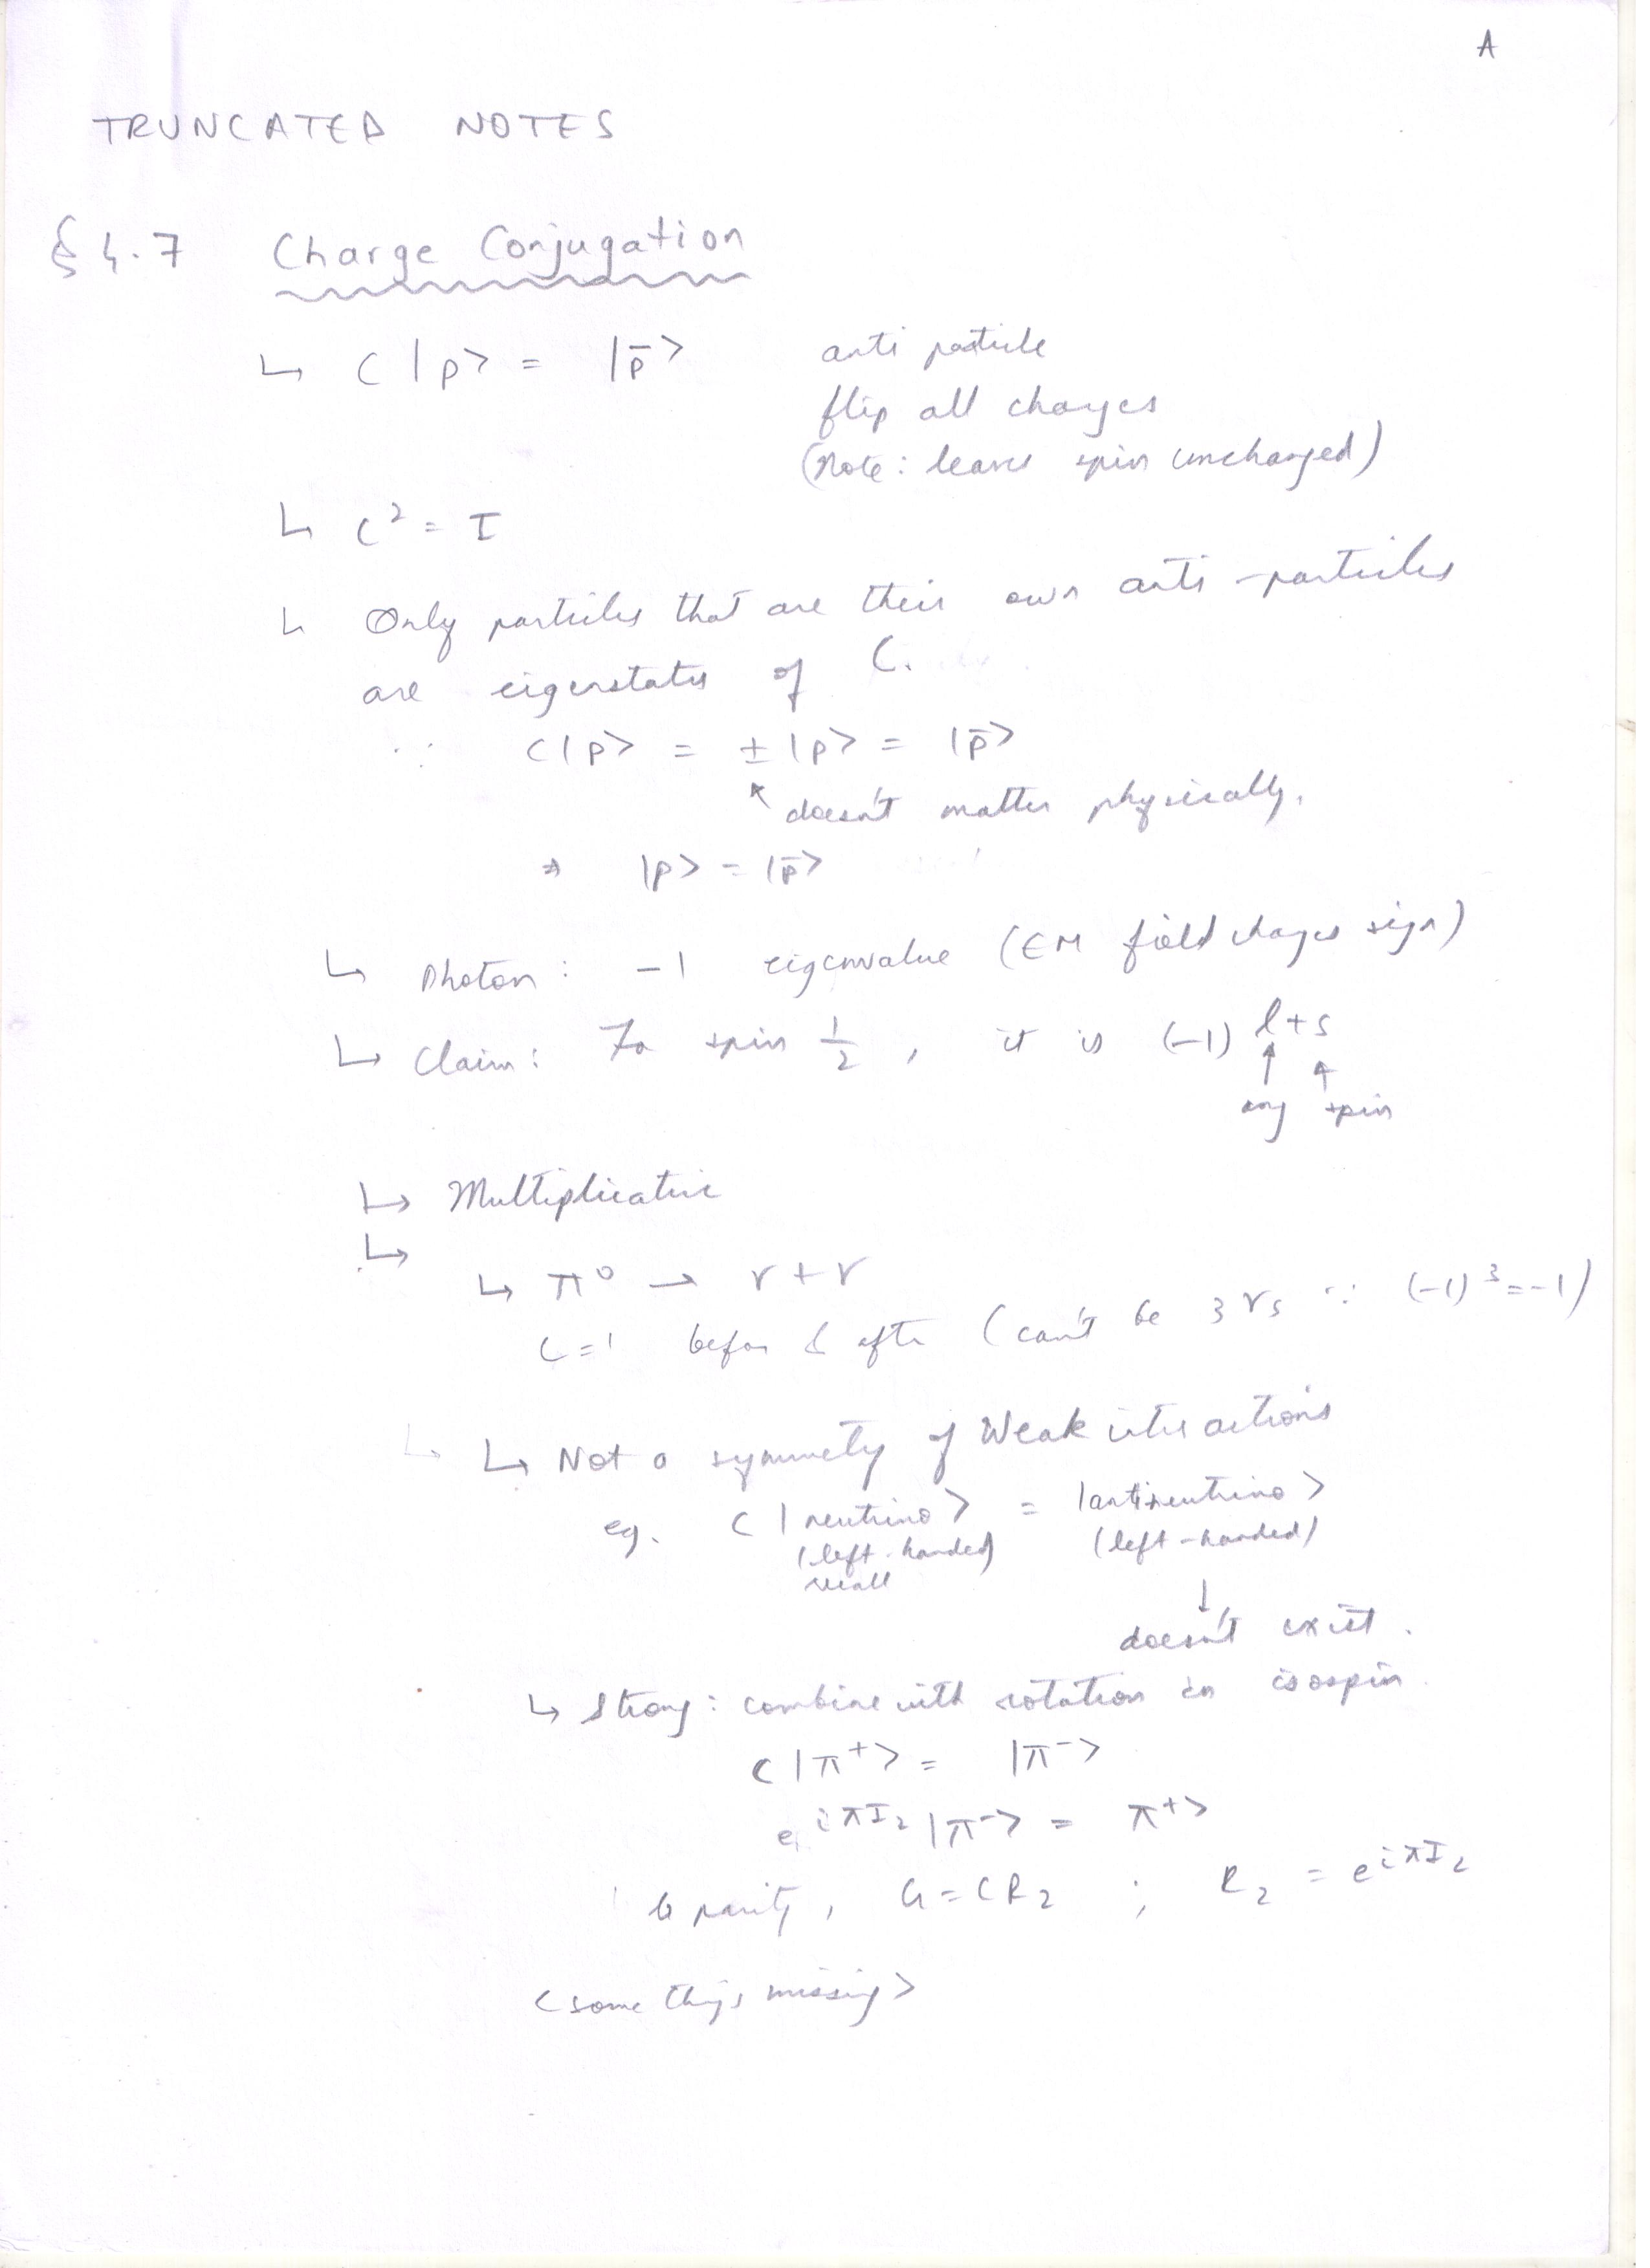 A
TRUNCATED NOTES
§ 4.7 Charge Conjugation
↳ C |p> = |p̄> anti particle
flip all charges
(Note: leaves spin unchanged)
↳ C² = I
↳ Only particles that are their own anti-particles
are eigenstates of C.
∵ C|p> = ± |p> = |p̄>
↖ doesn't matter physically.
⇒ |p> = |p̄>
↳ Photon: -1 eigenvalue (EM field changes sign)
↳ Claim: For spin 1/2, it is (-1) l+s
↑ ↑
ang spin
↳ Multiplicative
↳
↳ π⁰ → γ + γ
C=1 before & after (can't be 3 γs ∵ (-1)³=-1)
↳ Not a symmety of Weak interactions
eg. C |neutrino> = |antineutrino>
(left-handed) (left-handed)
recall
↓
doesn't exist.
↳ Strong: combine with rotation in isospin
C|π⁺> = |π⁻>
e^{iπI₂} |π⁻> = π⁺>
G parity, G=CR₂ ; R₂ = e^{iπI₂}
<some things missing>